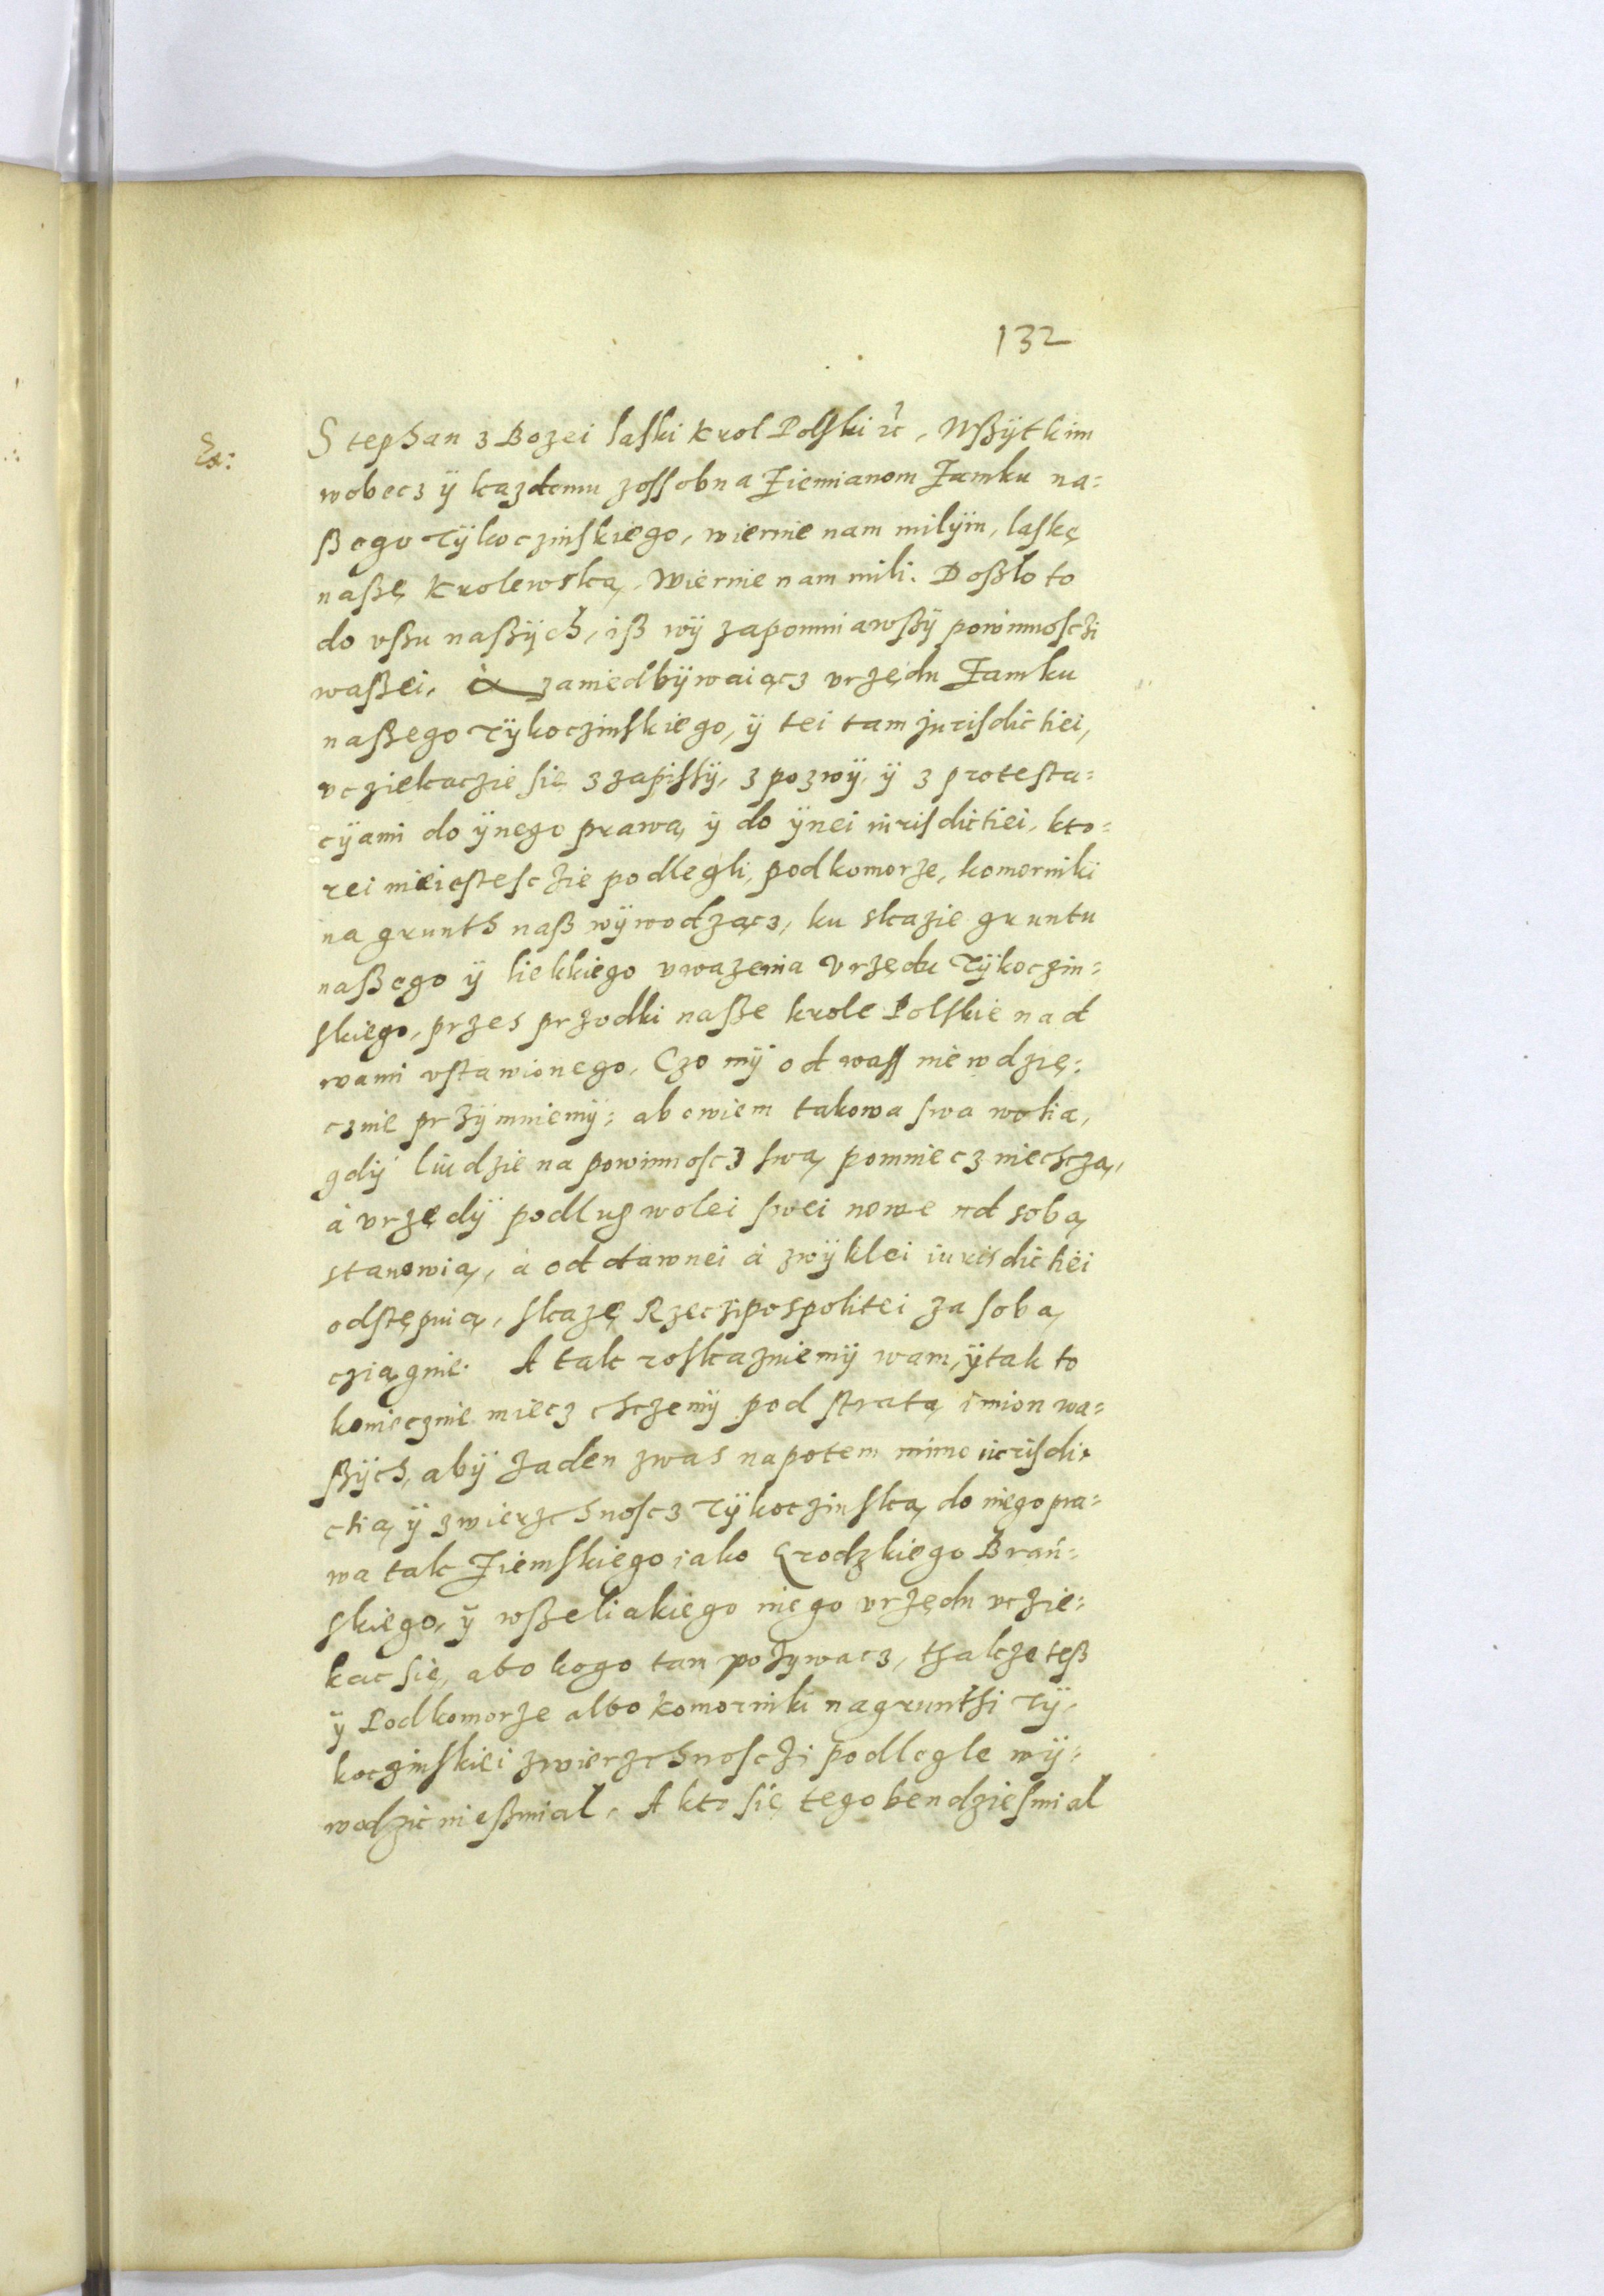 132
Ex:
Stephan z Bozei laski Krol Polski etc, Wßÿtkim
wobecz ÿ kazdemu zossobna Ziemianom Zamku na=
ßego Tÿkoczinskiego, wiernie nam milÿm, laskę
naßę Krolewską. Wiernie nam mili. Doßło to
do vßu naßÿch, iß wÿ zapomniawßÿ powinnosczi
waßei, à zaniedbÿwaiącz vrzędu Zamku
naßego Tÿkoczinskiego, ÿ tei tam Jurisdictiei,
vcziekaczie się z zapissÿ, z pozwÿ, ÿ z protesta=
cÿami do ÿnego prawa, ÿ do ÿnei iurisdictiei, kto=
rei nieiestesczie podlegli, podkomorze, komorniki
na grunth naß wÿwodzącz, ku skazie gruntu
naßego ÿ liekkiego vwazenia Vrzędu Tÿkoczin=
skiego, przes przodki naße krole Polskie nad
wami vstawionego, Czo mÿ od wass niewdzię=
cznie przÿmuiemÿ: abowiem takowa swa wolia,
gdÿ liudzie na powinnoscz swą pomniecz niechczą,
à vrzędÿ podlug wolei swei nowe nd sobą
stanowią, à od dawnei à zwÿklei iurisdictiei
odstępuią, skazę Rzeczipospolitei za sobą
cziągnie. A tak roskazuiemÿ wam, ÿ tak to
koniecznie miecz chczemÿ pod stratą imion wa=
ßÿch, abÿ zaden zwas napotem mimo iurisdi=
ctią ÿ zwierzchnoscz Tÿkoczinską do inego pra=
wa tak Ziemskiego iako Grodzkiego Brań=
skiego, ÿ wßeliakiego inego vrzędu vczie=
kac się, abo kogo tam pozywacz, thakze teß
ÿ Podkomorze albo Komorniki na grunthi Tÿ=
koczinskiei zwierzchnosczi podlegle wÿ=
wodzic nießmial, A kto się tego bendzie smial